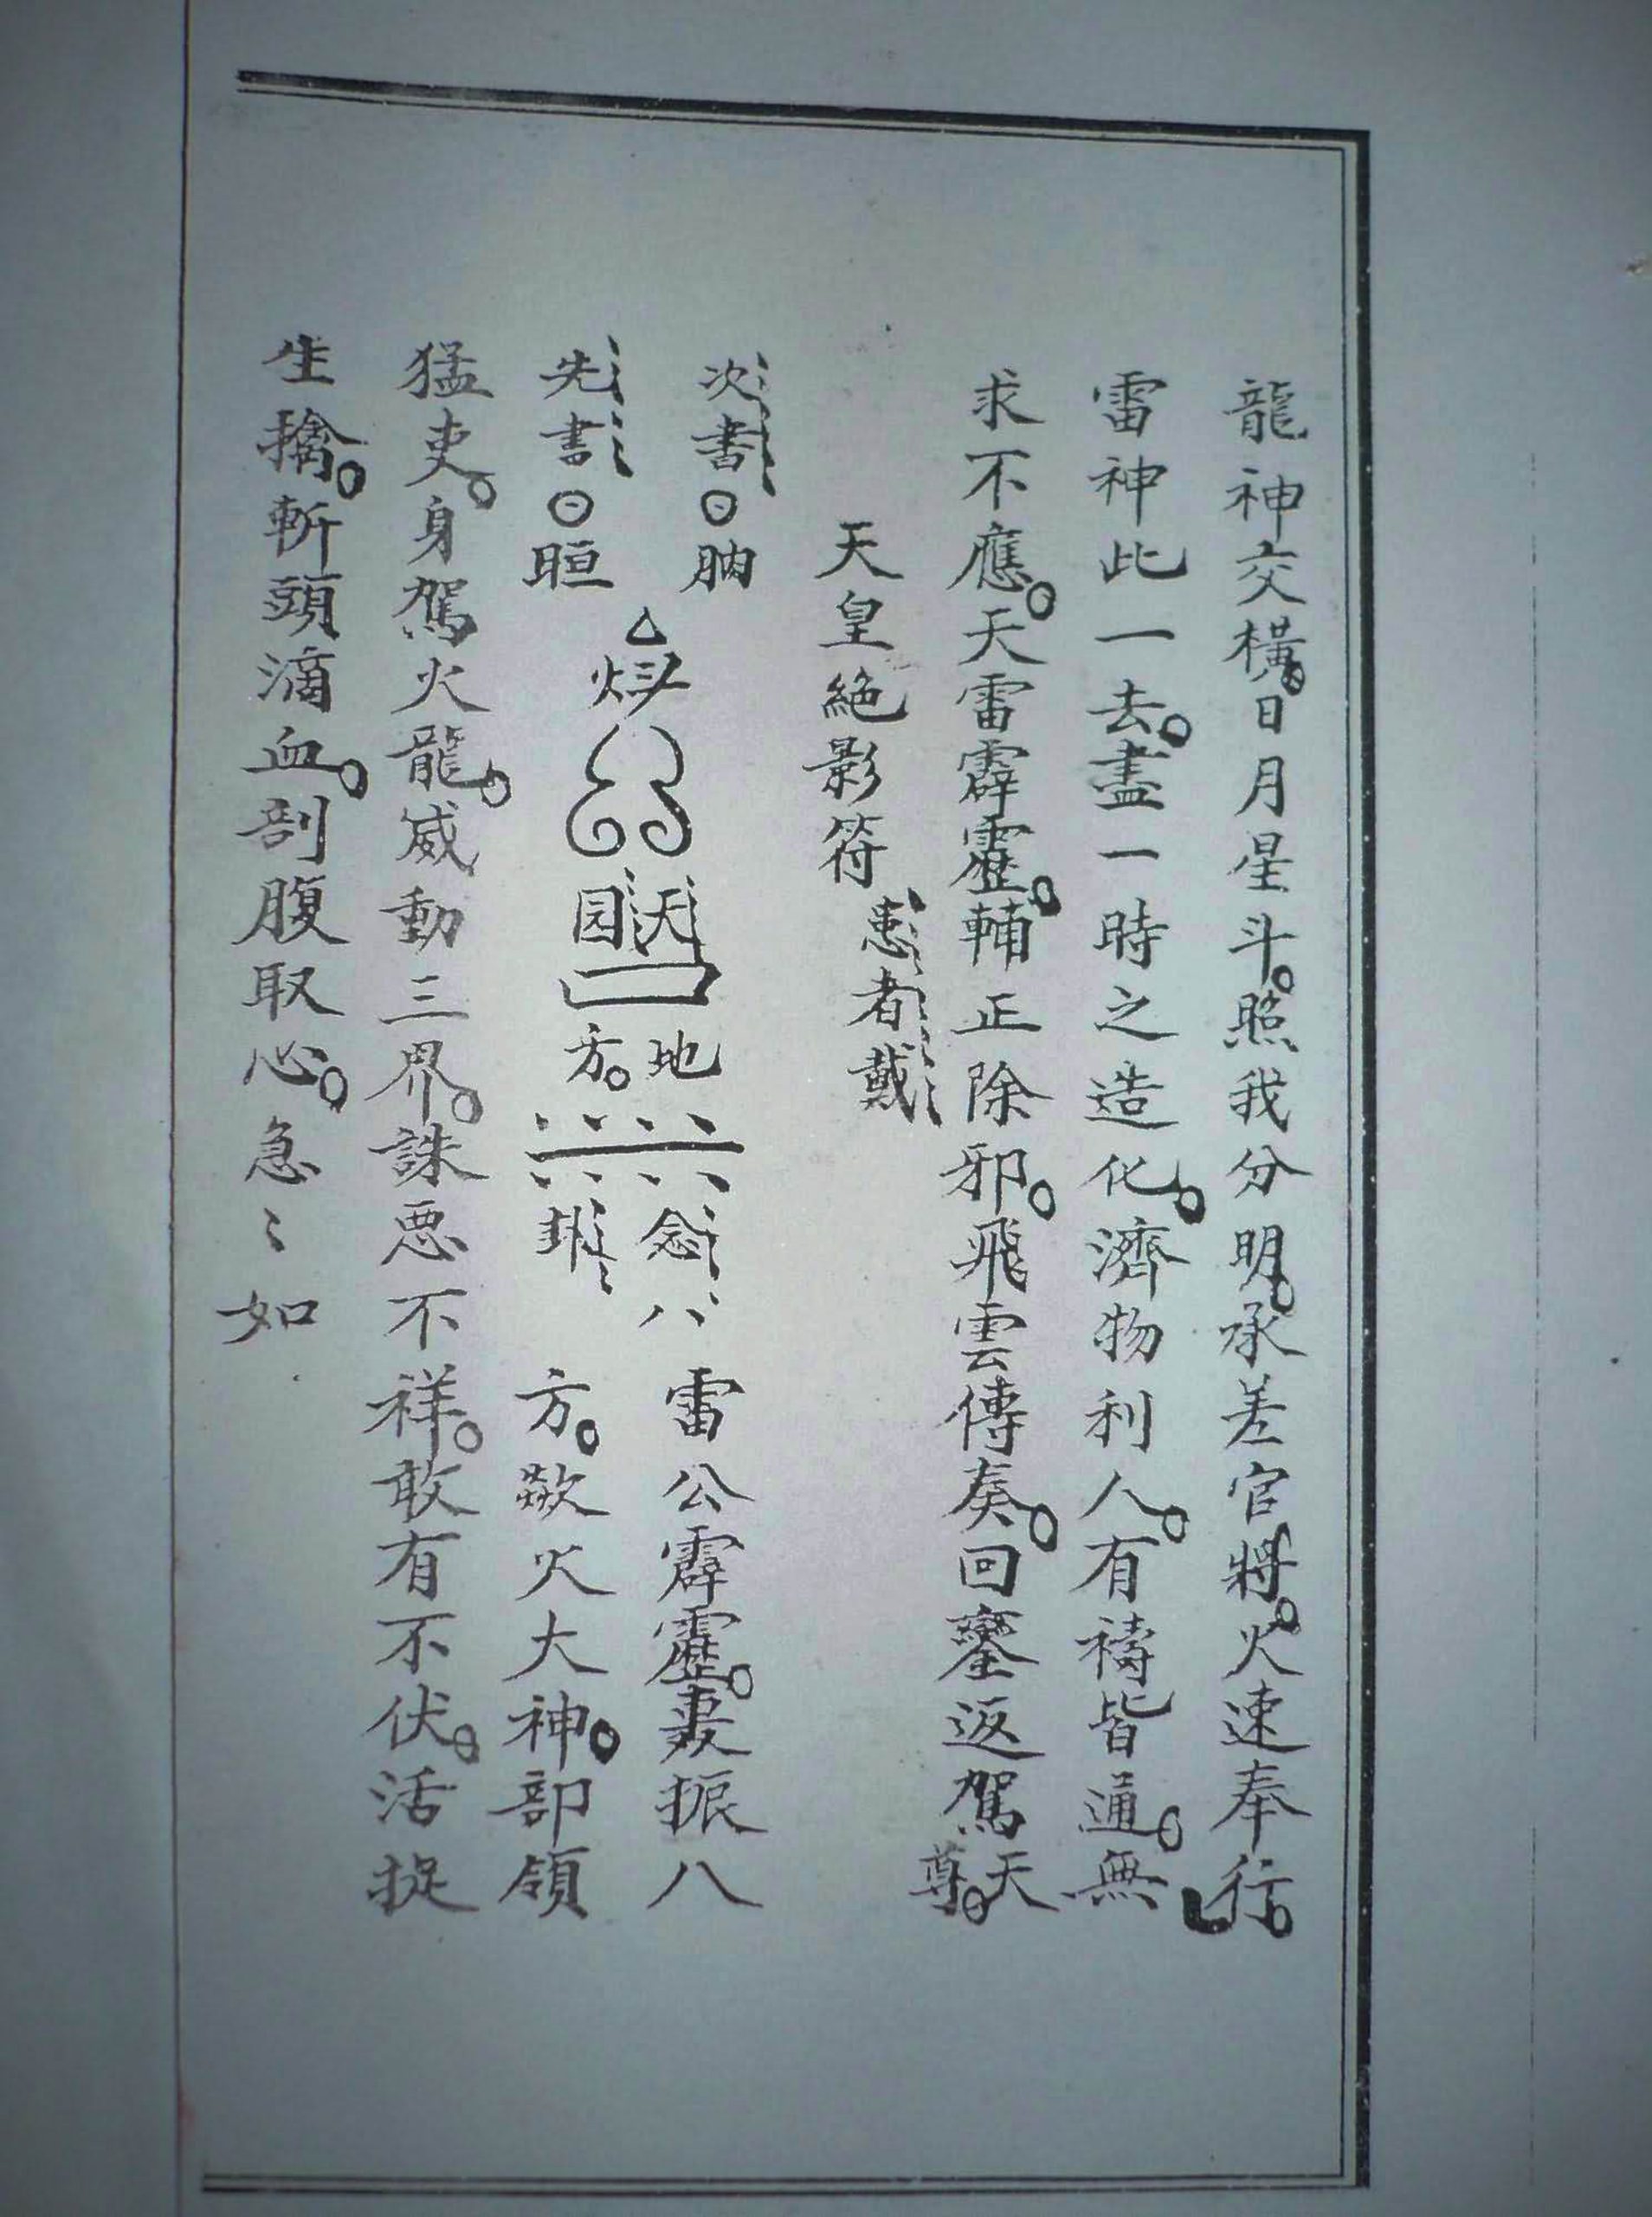 龍神交橫。日月星斗。照我分明。承差官將。火速奉行。
雷神此一去。盡一時之造化。濟物利人。有禱皆通。無
求不應。天雷霹靂。輔正除邪。飛雲傳奏。回鑾返駕天尊。
天皇絕影符
患者戴
次書
先書
天园
地方。
念
雷公霹靂。妻振八
方。歘火大神。部領
猛吏。身駕火龍。威動三界。誅惡不祥。敢有不伏。活捉
生擒。斬頭滴血。剖腹取心。急〻如